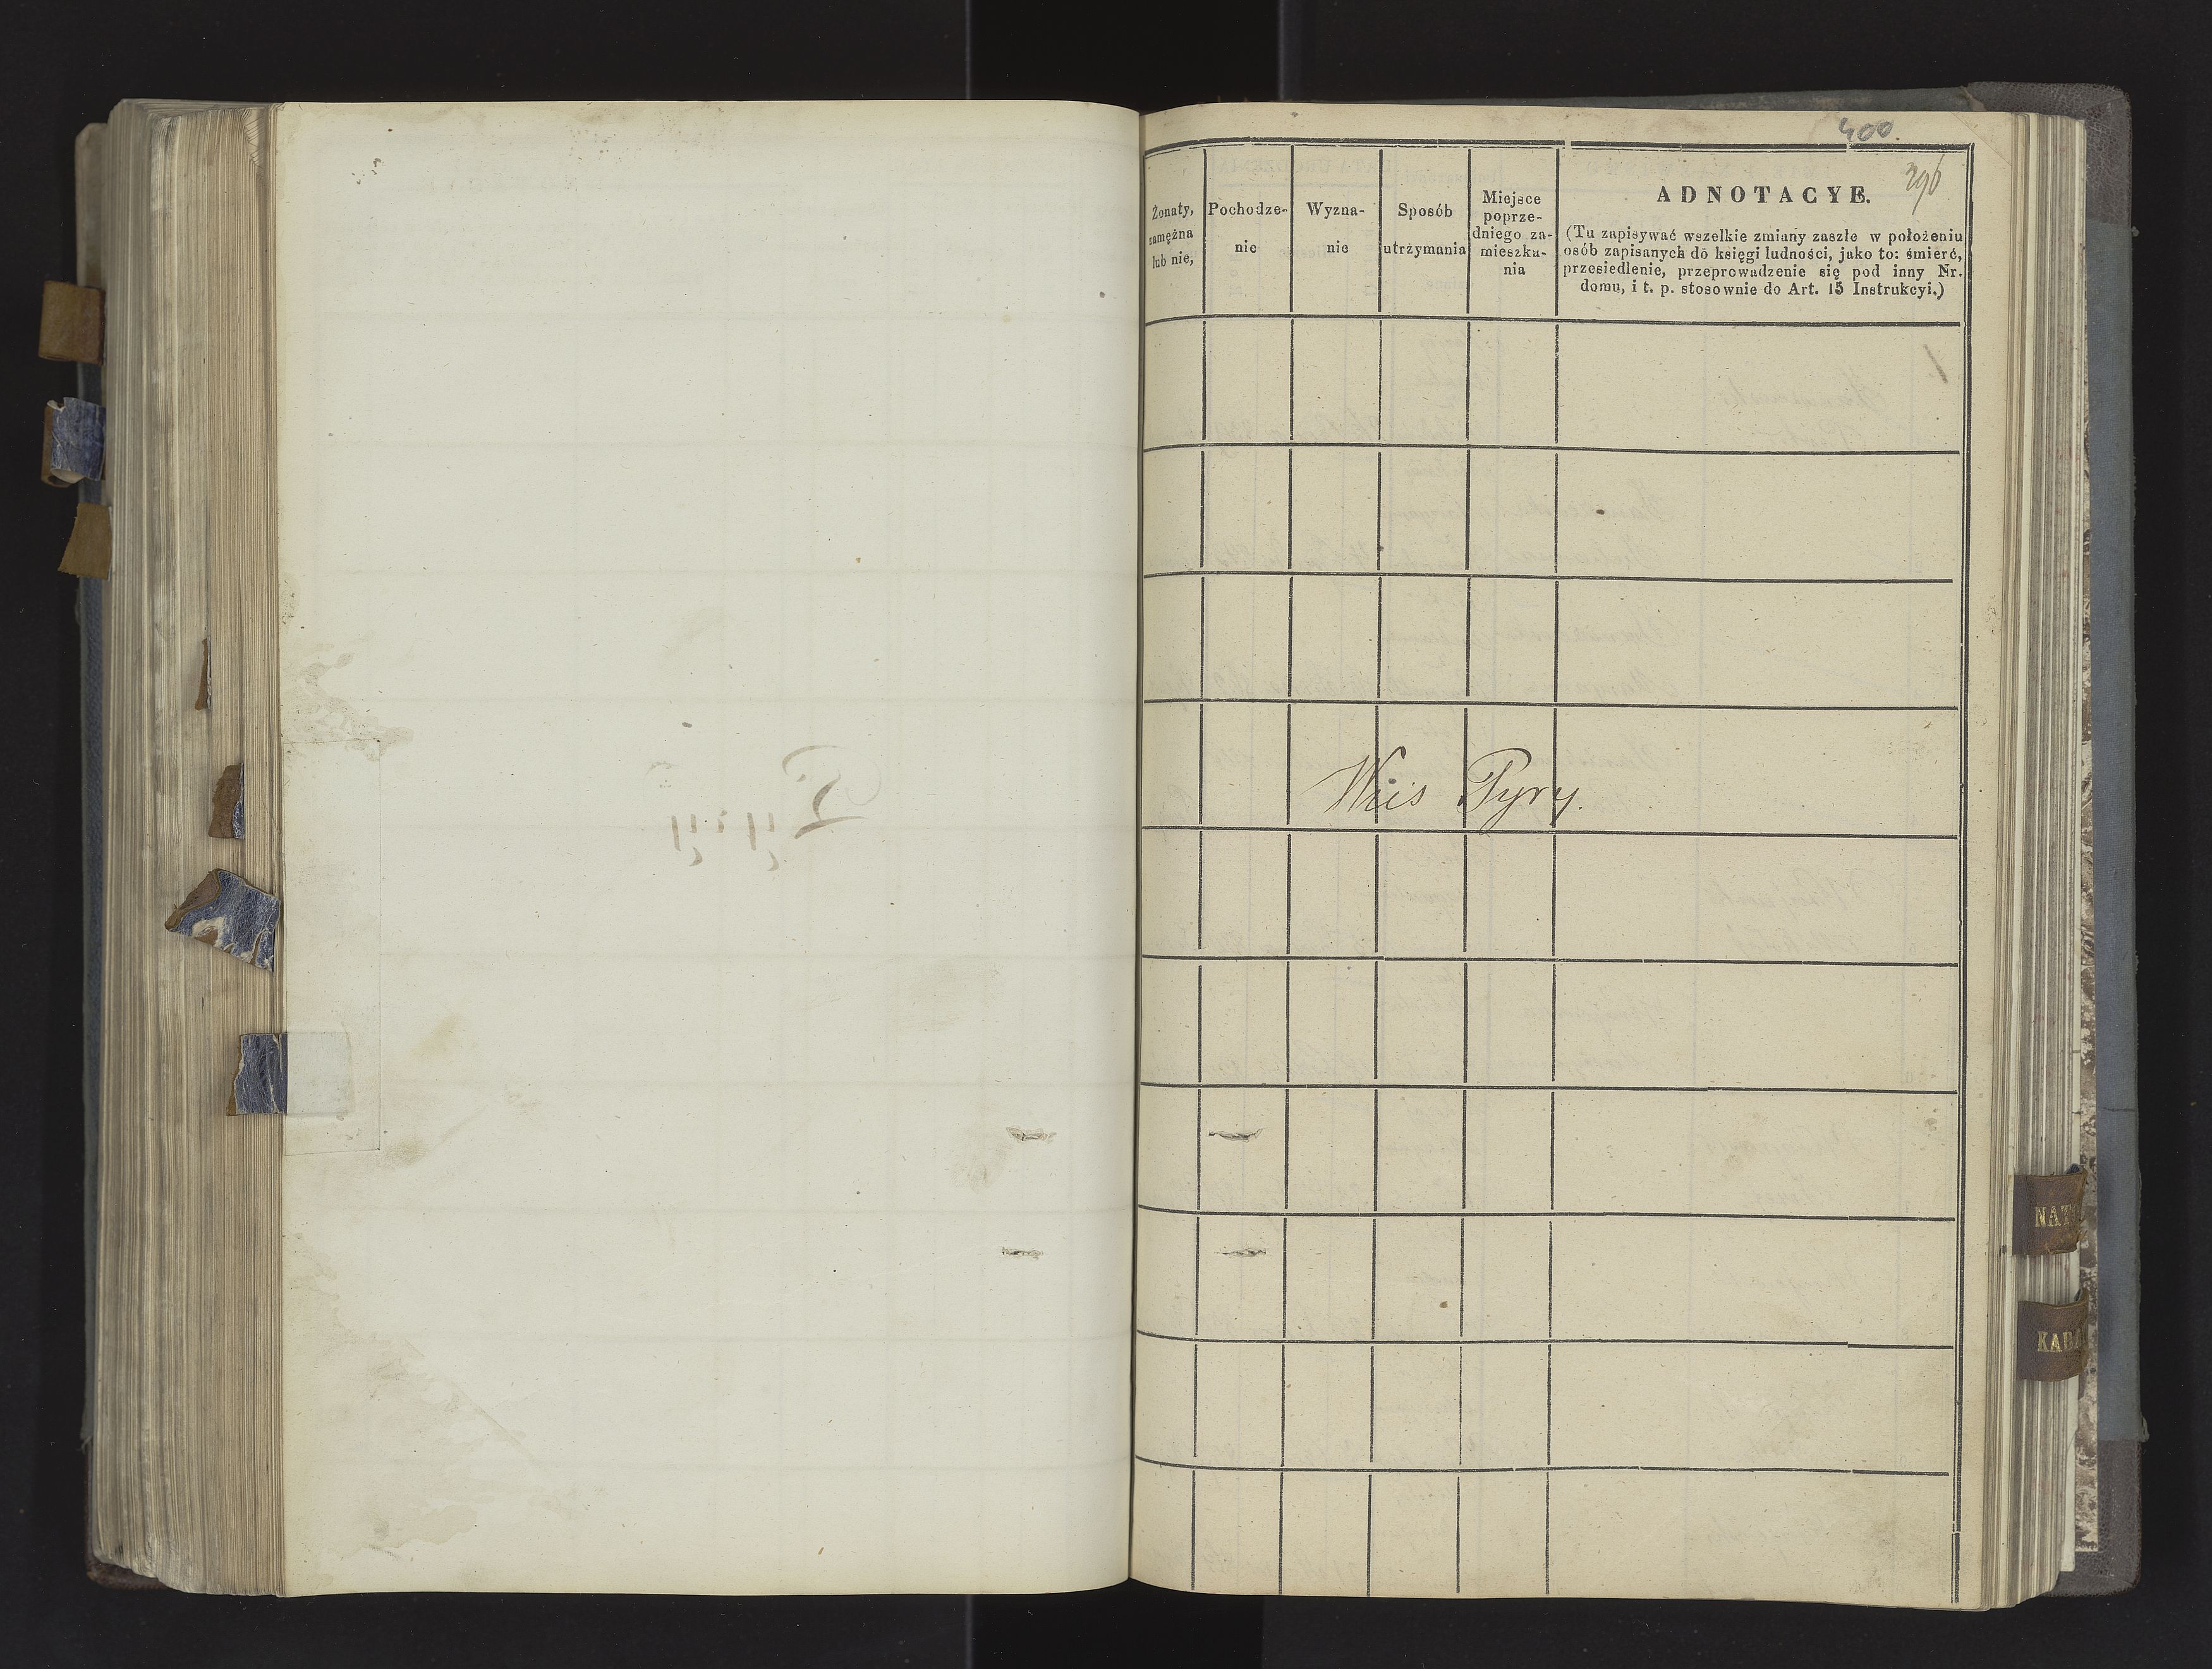 400.
396
Żonaty,
zamężna
lub nie,
Pochodze-
nie
Wyzna-
nie
Sposób
utrzymania
Miejsce
poprze-
dniego za-
mieszka-
nia
ADNOTACYE.
(Tu zapisywać wszelkie zmiany zaszłe w położeniu
osób zapisanych do księgi ludności, jako to: śmierć,
przesiedlenie, przeprowadzenie się pod inny Nr.
domu, i t. p. stosownie do Art. 15 Instrukcyi.)
Wieś Pyry.
NAT
KABA